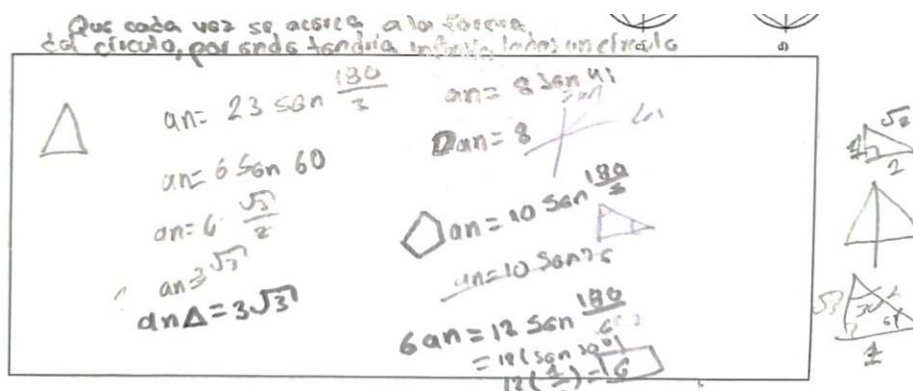 Que cada vez se acerca a la forma
del circulo, por ende tendria lados un circulo
an= 23 sen 180/3
an= 6 sen 60
an= 6 √3/2
an=3√3
an△=3√3
an= 8 sen
an= 8
an= 10 sen 180/5
an=10 sen
6 an= 12 sen 180/6
= 12(sen 30°)
12(1/2)=6
√2
2
√3
1